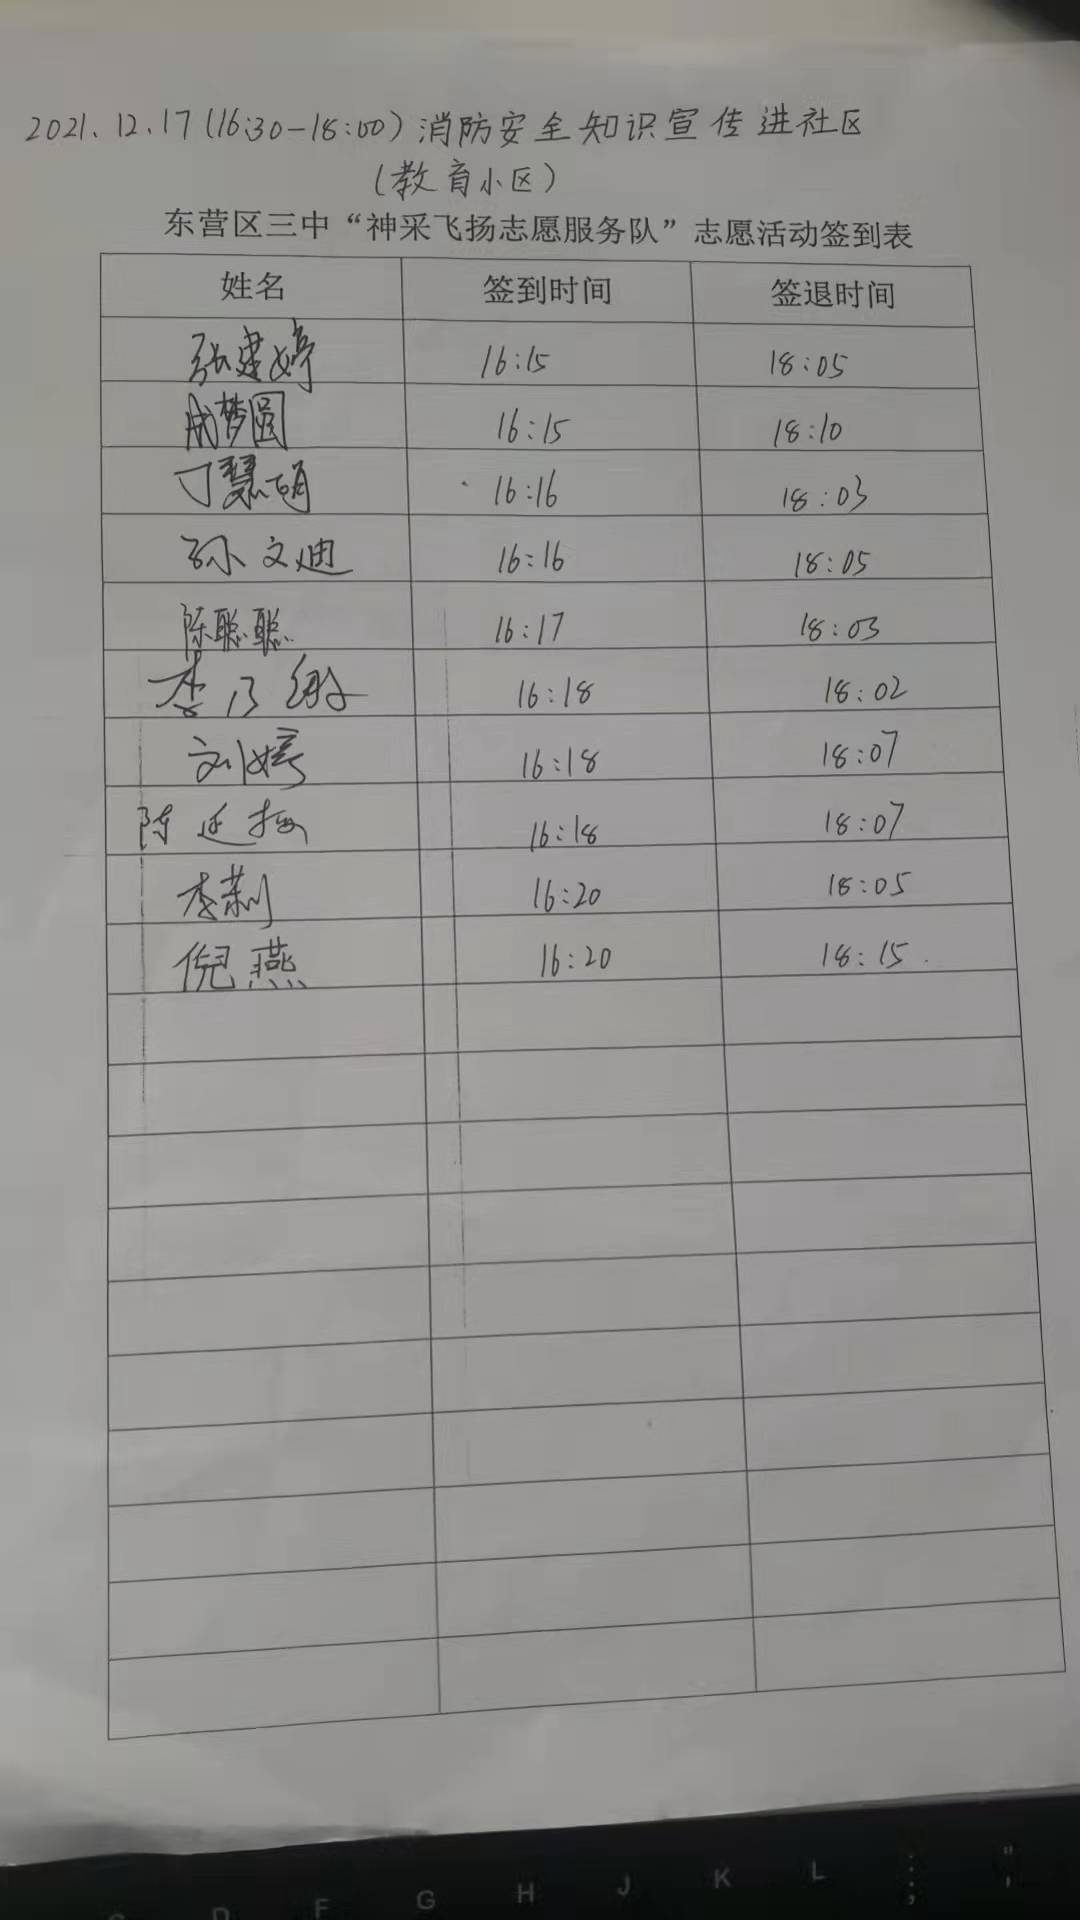 2021.12.17(16:30-18:00)消防安全知识宣传进社区
(教育小区)
东营区三中“神采飞扬志愿服务队”志愿活动签到表
姓名 签到时间 签退时间
张建婷 16:15 18:05
成梦圆 16:15 18:10
丁慧 16:16 18:03
孙文迪 16:16 18:05
陈聪聪 16:17 18:03
李乃敏 16:18 18:02
刘婷 16:18 18:07
陈延梅 16:18 18:07
李莉 16:20 18:05
倪燕 16:20 18:15
D F G H J K L : ;
" '